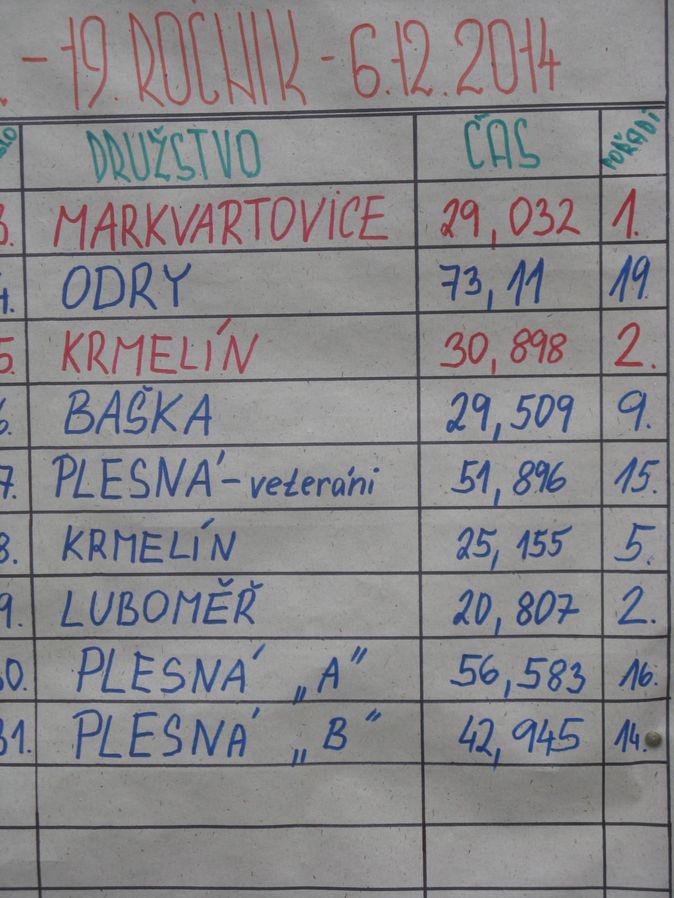 . - 19. ROČNIK - 6.12.2014
DRUŽSTVO ČAS POŘADÍ
3. MARKVARTOVICE 29,032 1.
4. ODRY 73,11 19.
5. KRMELÍN 30,898 2.
6. BAŠKA 29,509 9.
7. PLESNÁ - veteráni 51,896 15.
8. KRMELÍN 25,155 5.
9. LUBOMĚŘ 20,807 2.
30. PLESNÁ „A" 56,583 16.
31. PLESNÁ „B" 42,945 14.